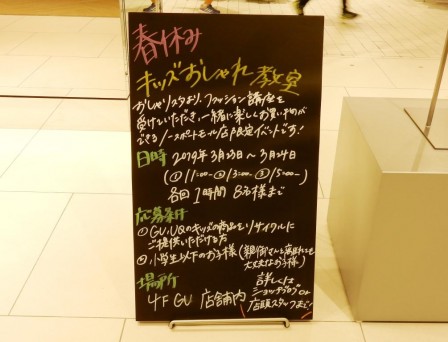 春休み
キッズおしゃれ教室
おしゃリスタより、ファッション講座を
受けていただき、一緒に楽しくお買いものが
できるノースポートモール店限定イベントです!
日時 2019年3月23日～3月24日
(①11:00～ ②13:00～ ③15:00～)
各回1時間 8名様まで
応募条件
①GU、UQのキッズの商品をリサイクルに
ご提供いただける方
②小学生以下のお子様(親御さんと離れても
大丈夫なお子様)
場所
4F GU 店舗内
詳しくは
ショップブログor
店頭スタッフまで!